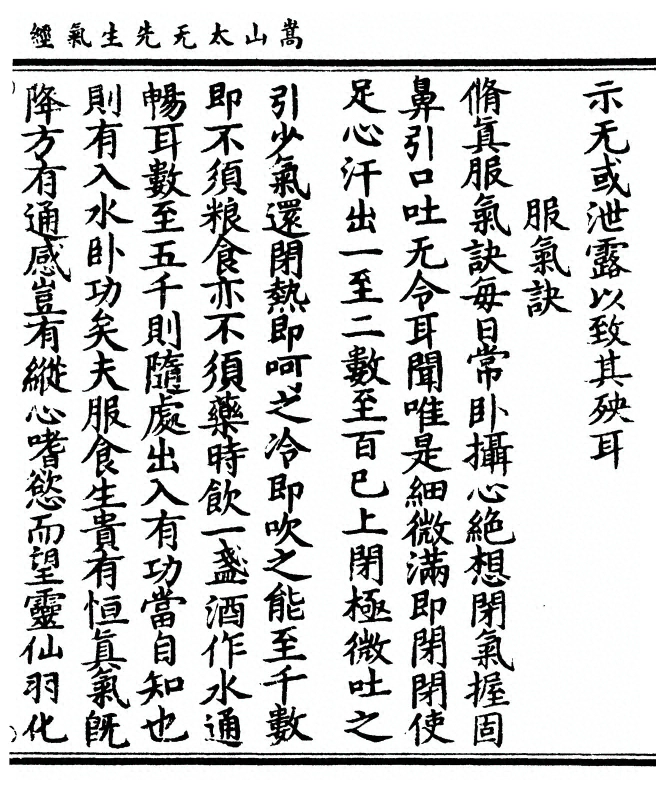 嵩山太无先生氣經
示无或泄露以致其殃耳
服氣訣
脩真服氣訣每日常卧攝心絶想閉氣握固
鼻引口吐无令耳聞唯是細微滿即閉閉使
足心汗出一至二數至百已上閉極微吐之
引少氣還閉熱即呵之冷即吹之能至千數
即不須粮食亦不須藥時飲一盞酒作水通
暢耳數至五千則隨處出入有功當自知也
則有入水卧功矣夫服食生貴有恒真氣旣
降方有通感豈有縱心嗜慾而望靈仙羽化